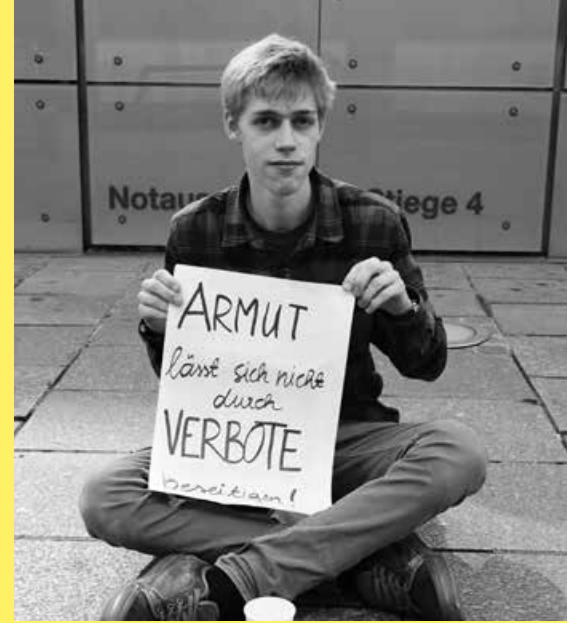 Notaus Stiege 4
ARMUT
lässt sich nicht
durch
VERBOTE
beseitigen!